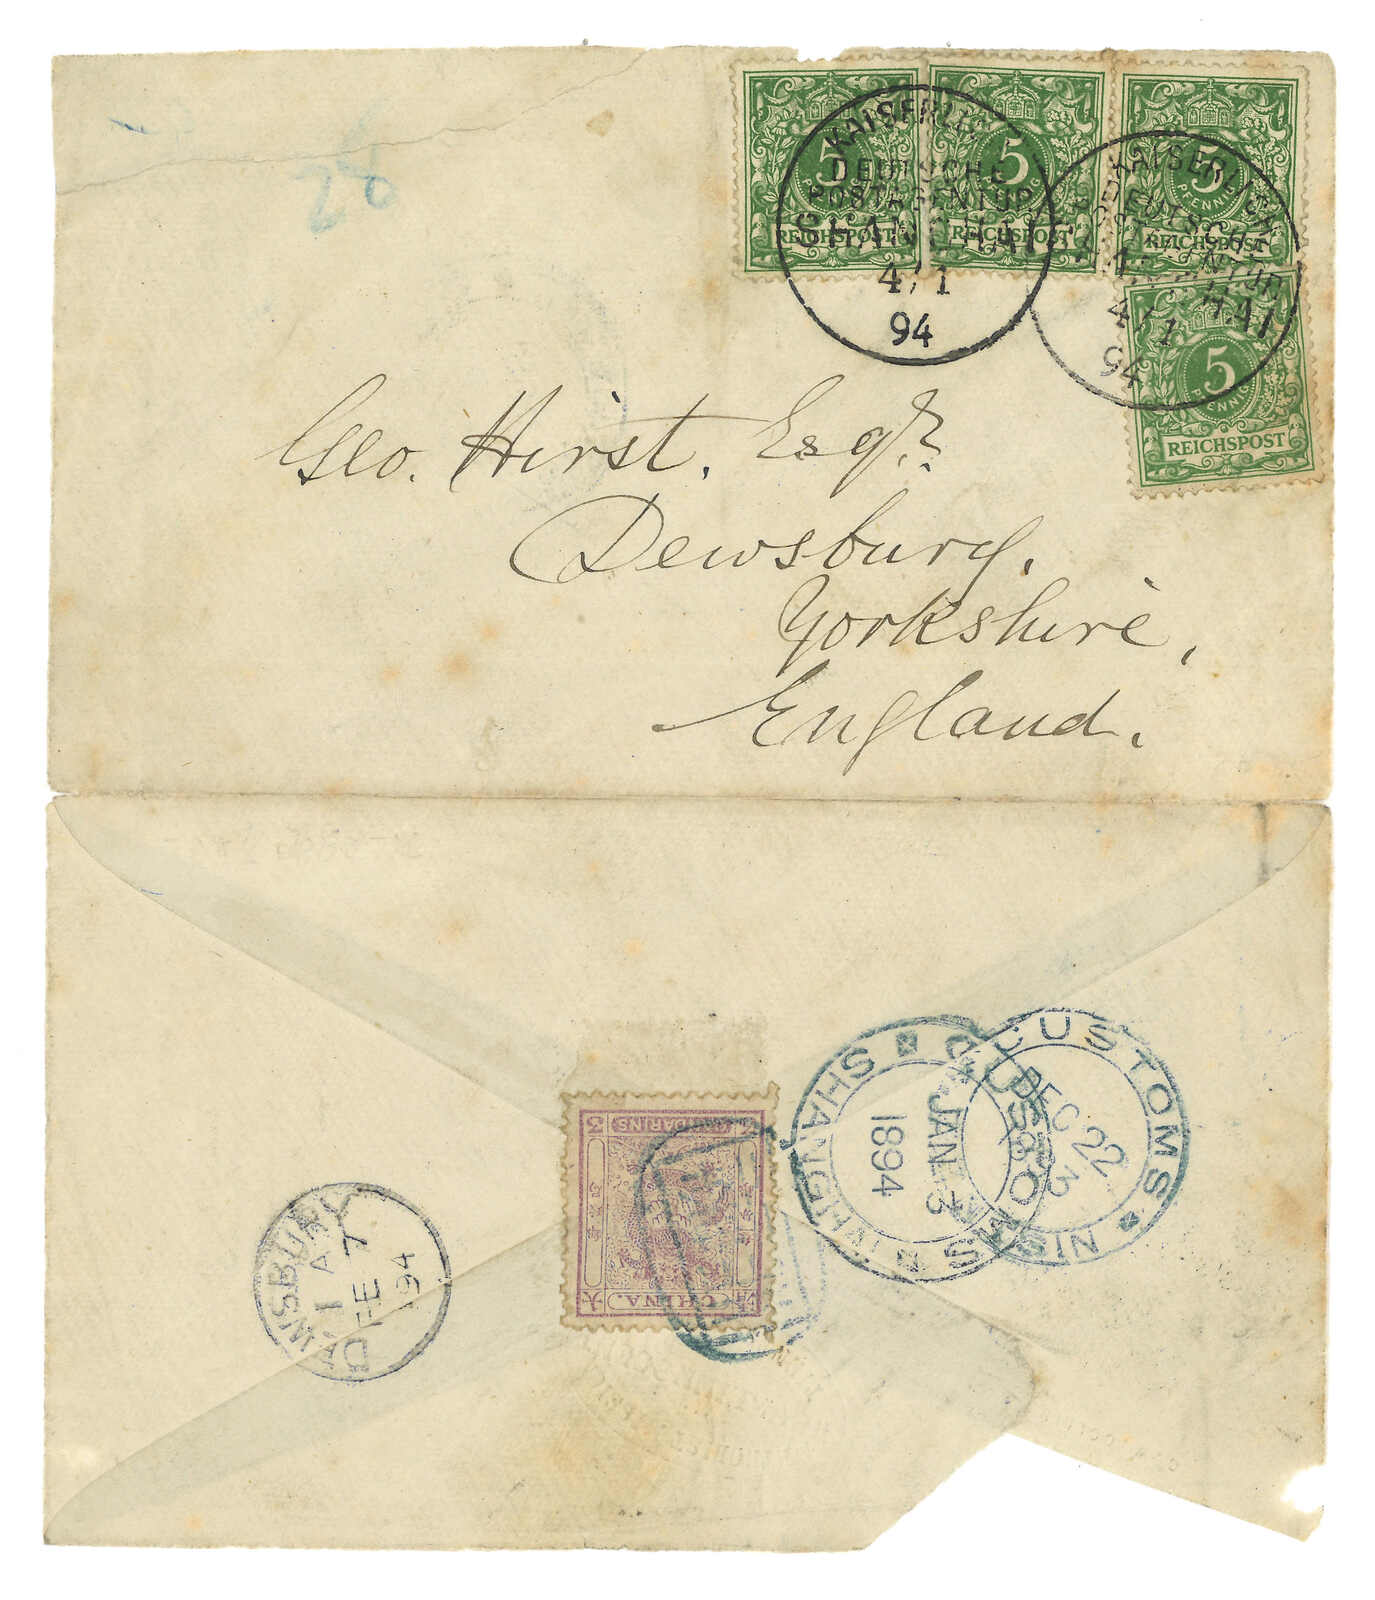 28
5
PFENNIG
REICHSPOST
5
PFENNIG
REICHSPOST
5
PFENNIG
REICHSPOST
5
PFENNIG
REICHSPOST
KAISERLICH
DEUTSCHE
POSTAGENTUR
SHANGHAI
4/1
94
KAISERLICH
DEUTSCHE
POSTAGENTUR
SHANGHAI
4/1
94
Geo. Hirst. Esqr.
Dewsbury.
Yorkshire,
England.
CUSTOMS
DEC 22
93
CUSTOMS
JAN 3
1894
SHANGHAI
3
CANDARINS
CHINA.
大
清
DEWSBURY
1 A
FE 7
94